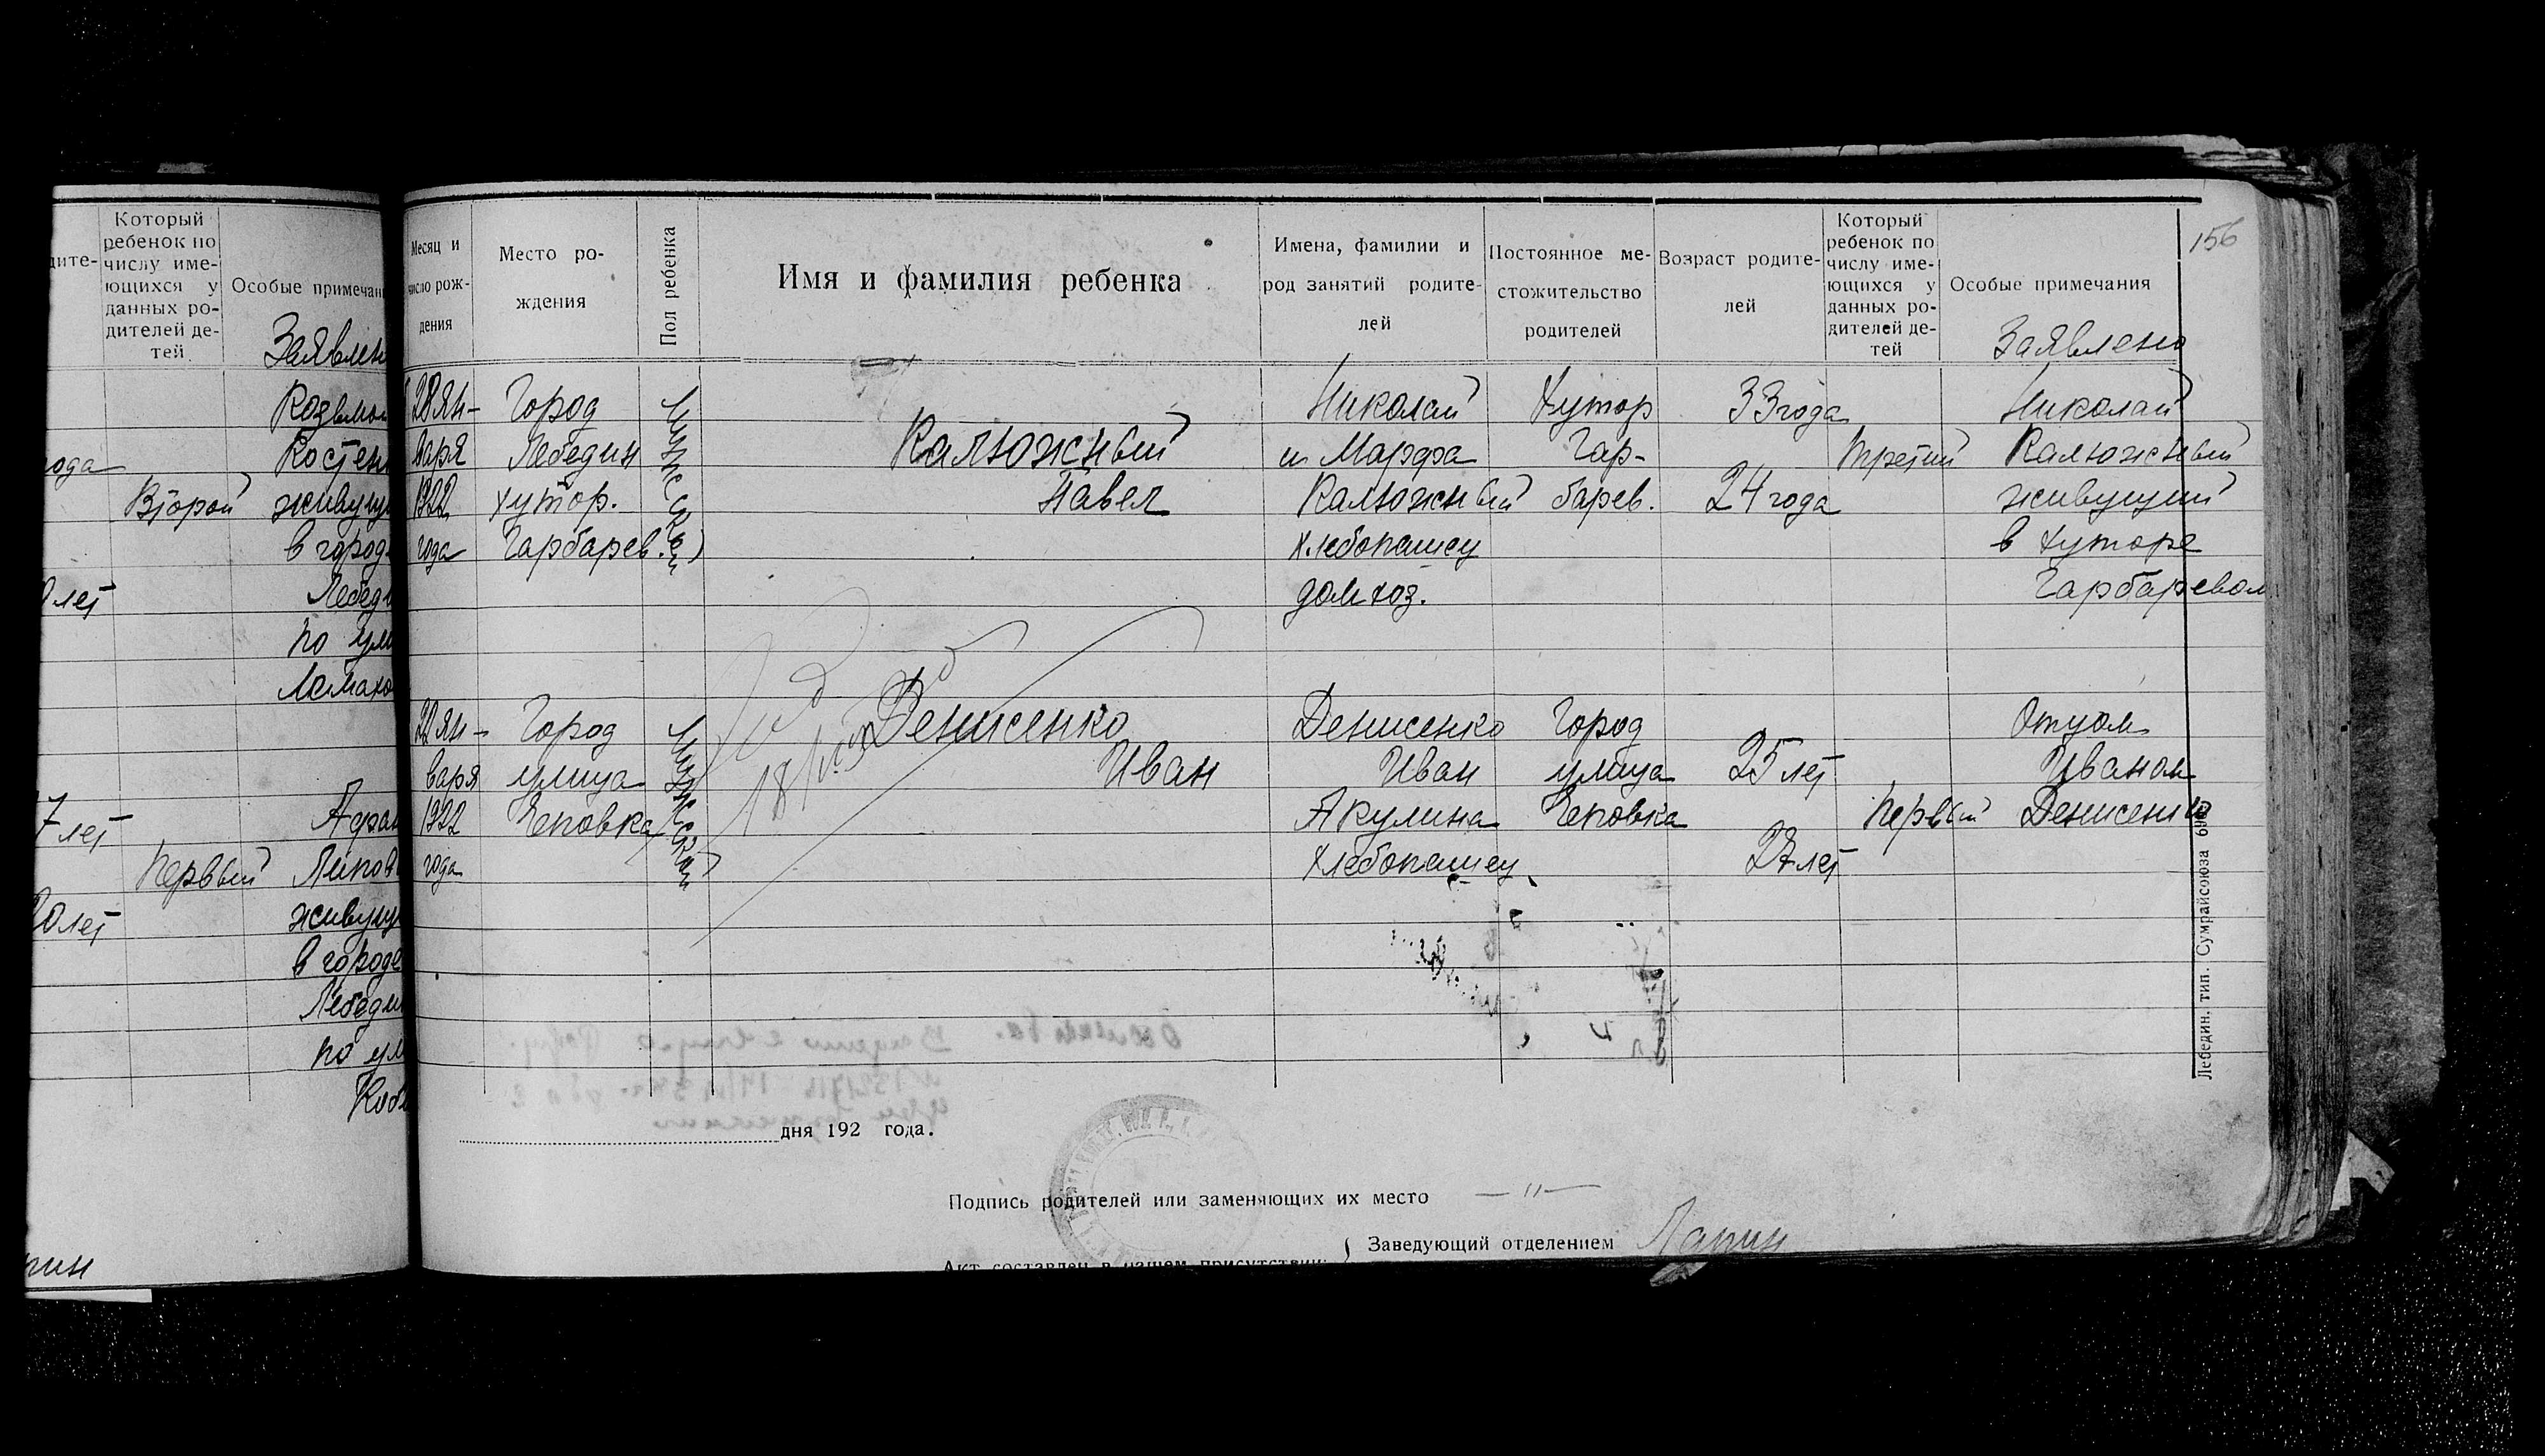 Который
ребенок по
числу име-
ющихся у
данных ро-
дителей де-
тей
Особые примечан
Заявлен
Костен
Второй живущ
в город
лет
Лебед
по ули
7 лет
Первый Липов
20 лет живущ
в городе
Лебедин
по ул
156
Месяц и
число рож-
дения
Место ро-
ждения
Пол ребенка
Имя и фамилия ребенка
Имена, фамилии и
род занятий родите-
лей
Постоянное ме-
стожительство
родителей
Возраст родите-
лей
Который
ребенок по
числу име-
ющихся у
данных ро-
дителей де-
тей
Особые примечания
Заявлено
28 Ян-
варя
1922
года
Город
Лебедин
хутор.
Гарбарев.
Мужской
Калюжный
Павел
Николай
и Марфа
Калюжный
хлебопашец
дом хоз.
Хутор
Гар-
барев.
33 года
24 года
третий
Николай
Калюжный
живущий
в хуторе
Гарбаревом
22 Ян-
варя
1922
года
Город
улица
Чеповка
Мужской
Денисенко
Иван
Денисенко
Иван
Акулина
хлебопашец
Город
улица
Чеповка
25 лет
27 лет
Первый
Отцом
Иваном
Денисенко
Лебедин. тип. Сумрайсоюза
дня 192 года.
Подпись родителей или заменяющих их место — " —
Заведующий отделением Ларин
Акт составлен в нашем присутствии: